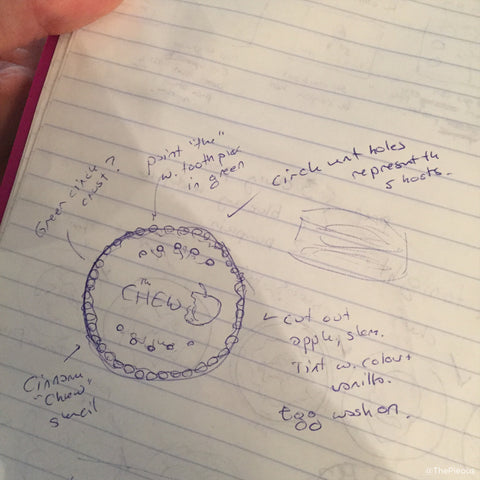 point "the"
w. toothpick
in green
Green circle
crust?
circle cut holes
represent th
5 hosts.
The
CHEW
← cut out
apple, stem.
Tint w. colour +
vanilla.
Egg wash on.
Cinnamon
"Chew"
stencil
@ThePieous